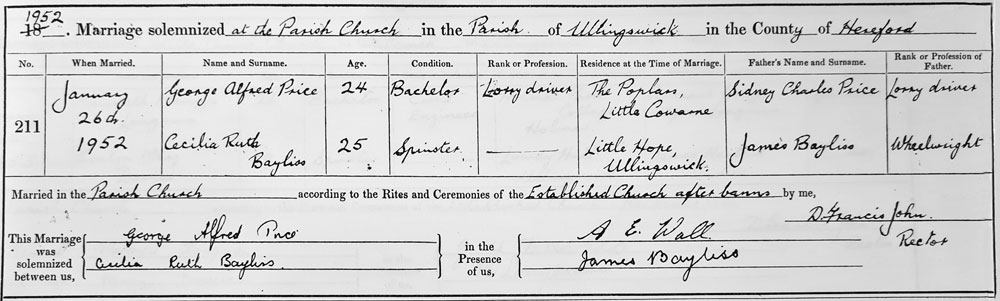 1952
18 . Marriage solemnized at the Parish Church in the Parish of Ullingswick in the County of Hereford
No. When Married. Name and Surname. Age. Condition. Rank or Profession. Residence at the Time of Marriage. Father's Name and Surname. Rank or Profession of Father.
211 January 26th 1952 George Alfred Price 24 Bachelor Lorry driver The Poplars, Little Cowarne Sidney Charles Price Lorry driver
Cecilia Ruth Bayliss 25 Spinster Little Hope, Ullingswick. James Bayliss Wheelwright
Married in the Parish Church according to the Rites and Ceremonies of the Established Church after banns by me,
D. Francis John.
Rector
This Marriage was solemnized between us,
George Alfred Price
Cecilia Ruth Bayliss.
in the Presence of us,
A E. Wall
James Bayliss